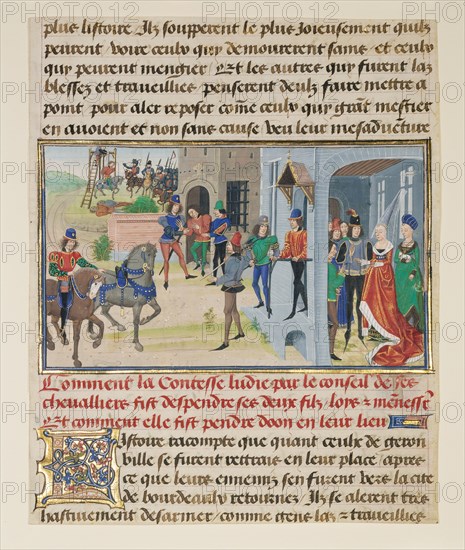 plus listoire Ilz soupperent le plus joieusement quilz
peurent voire ceulx quy demourerent sains et ceulx
quy peurent mengier Et les autres quy furent las
blessez et travveilliez penserent deulx faire mettre a
point pour aler reposer comme ceulx quy grant mestier
en avoient et non sans cause veu leur mesadventure
Comment la Contesse ludie par le conseil de ses
chevalliers fist despendre ses deux filz lors et
Et comment elle fist pendre doon en leur lieu
Istoire racompte que quant ceulx de geron
ville se furent retrais en leur place apres
ce que leurs ennemis sen furent vers la cite
de bourdeaulx retournez Ilz se alerent tres
hastivement desarmer comme gens las et travveillies
PHOTO 12